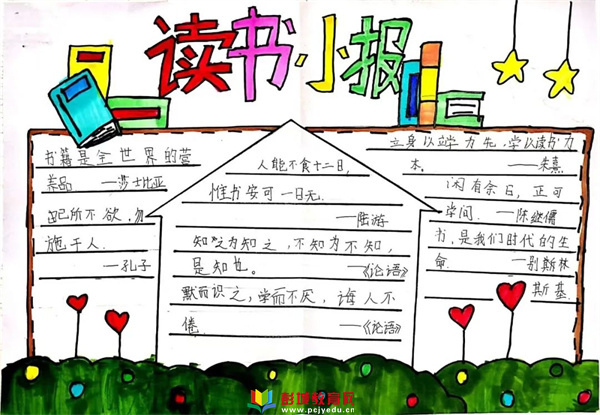 读书小报
书籍是全世界的营
养品 ——莎士比亚
己所不欲,勿
施于人.
——孔子
人能不食十二日,
惟书安可一日无.
——陆游
知之为知之,不知为不知,
是知也。 ——《论语》
默而识之,学而不厌,诲人不
倦. ——《论语》
立身以立学为先,学以读书为
本. ——朱熹
闲有余日,正可
学问. ——陈继儒
书,是我们时代的生
命. ——别斯林
斯基.
彭城教育网
www.pcjyedu.cn